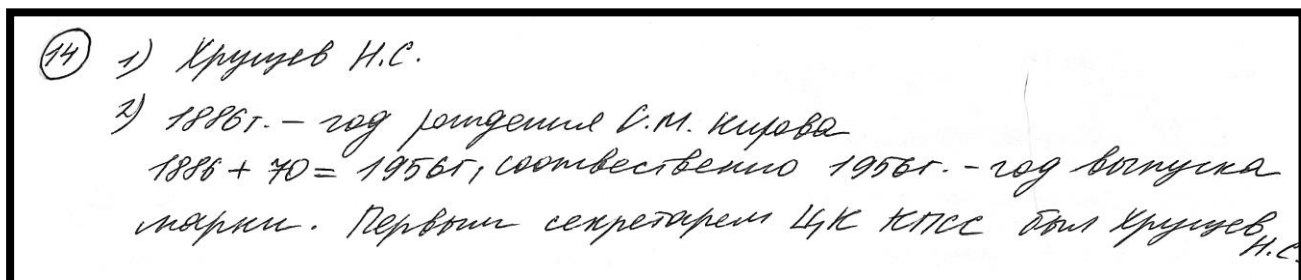 14 1) Хрущев Н.С.
2) 1886г. – год рождения С.М. Кирова
1886 + 70 = 1956г, соотвественно 1956г. – год выпуска
марки. Первым секретарем ЦК КПСС был Хрущев
Н.С.